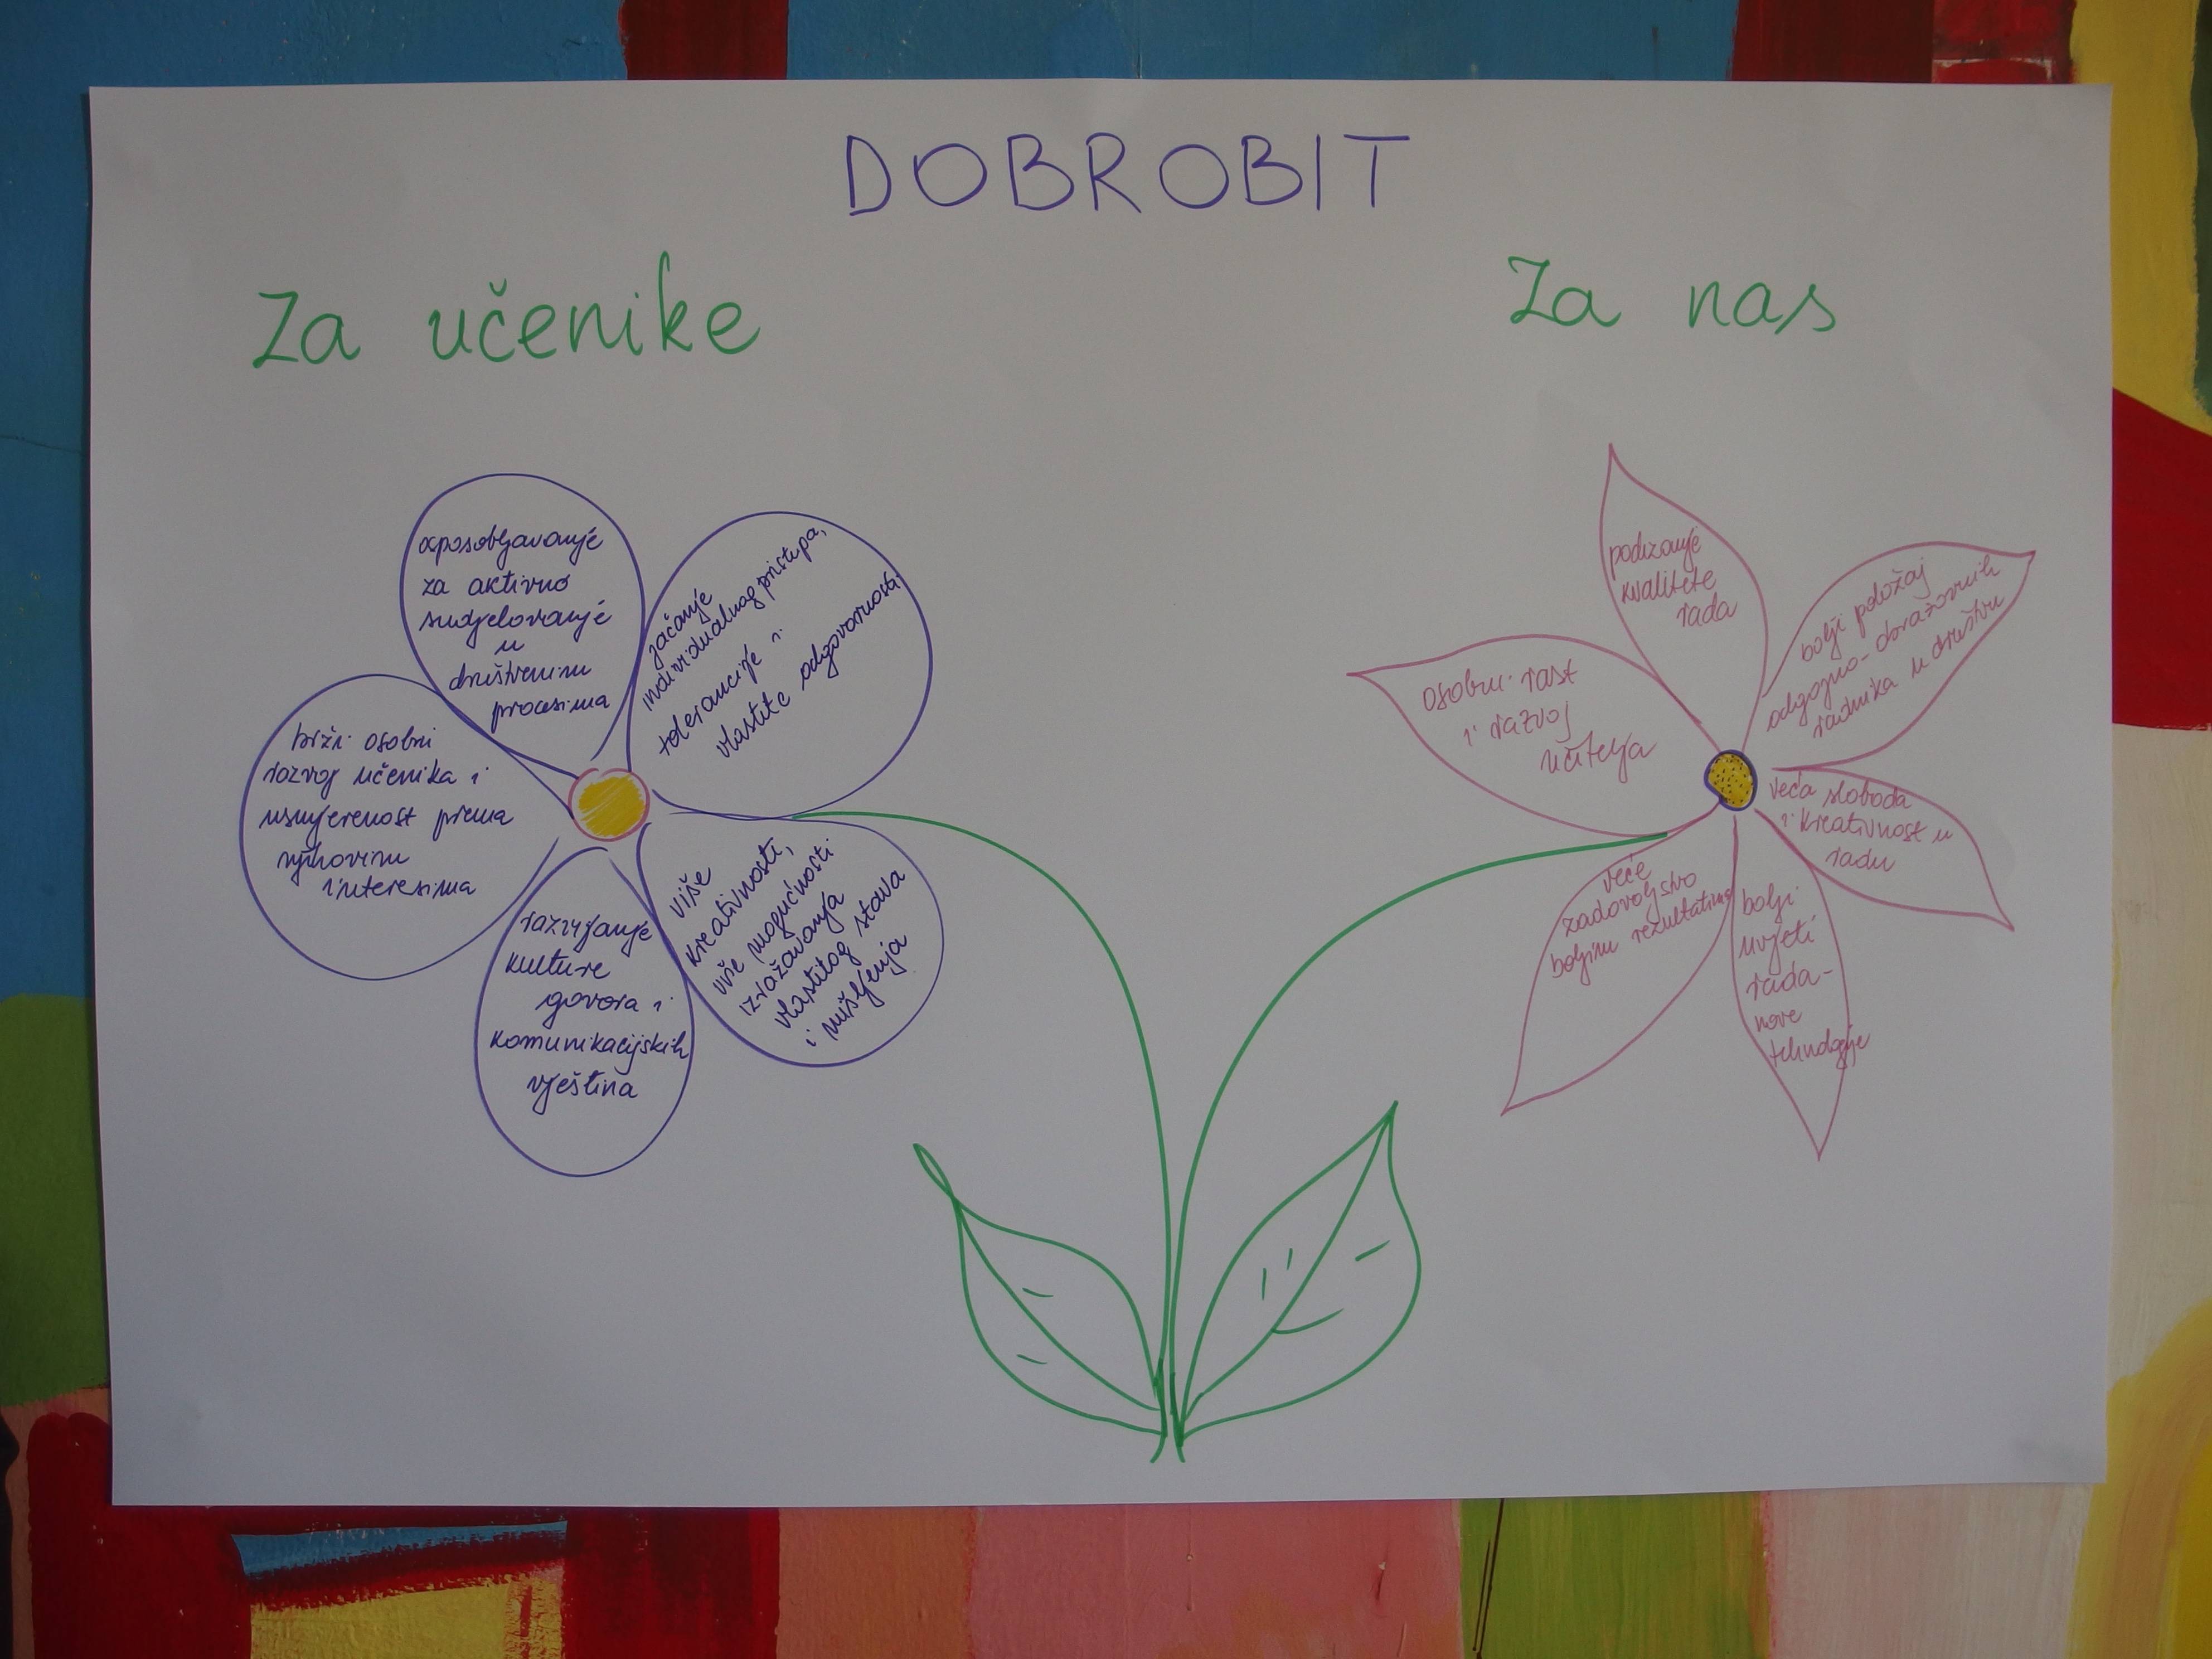 DOBROBIT
Za učenike
Za nas
osposobljavanje
za aktivno
sudjelovanje
u
društvenim
procesima
jačanje
individualnog pristupa,
tolerancije i
vlastite odgovornosti
brži osobni
razvoj učenika i
usmjerenost prema
njihovim
interesima
razvijanje
kulture
govora i
komunikacijskih
vještina
više
kreativnosti,
više mogućnosti
izražavanja
vlastitog stava
i mišljenja
podizanje
kvalitete
rada
bolji položaj
odgojno-obrazovnih
radnika u društvu
osobni rast
i razvoj
učitelja
veća sloboda
i kreativnost u
radu
veće
zadovoljstvo
boljim rezultatima
bolji
uvjeti
rada-
nove
tehnologije